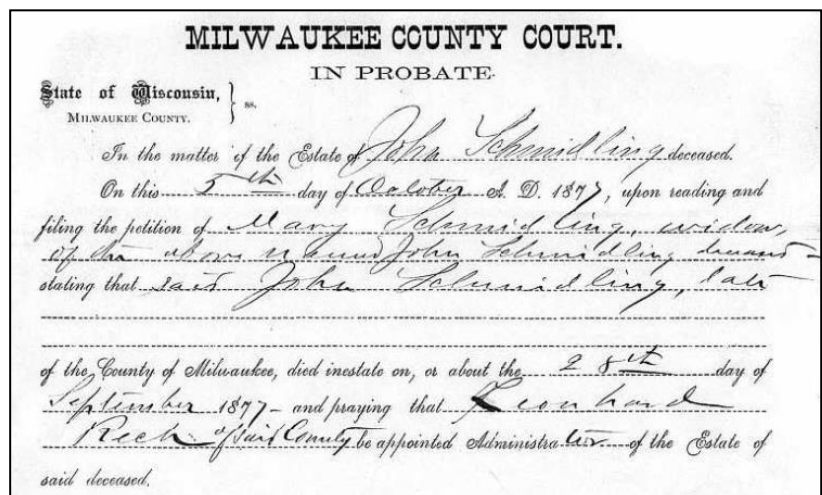 MILWAUKEE COUNTY COURT.
IN PROBATE.
State of Wisconsin,
MILWAUKEE COUNTY. } ss.
In the matter of the Estate of John Schmidling deceased.
On this 5th day of October A. D. 1877, upon reading and
filing the petition of Mary Schmidling, widow,
of the above named John Schmidling deceased
stating that said John Schmidling, late
of the County of Milwaukee, died inestate on, or about the 28th day of
September 1877 - and praying that Leonhard
Rech of said County be appointed Administrator of the Estate of
said deceased.